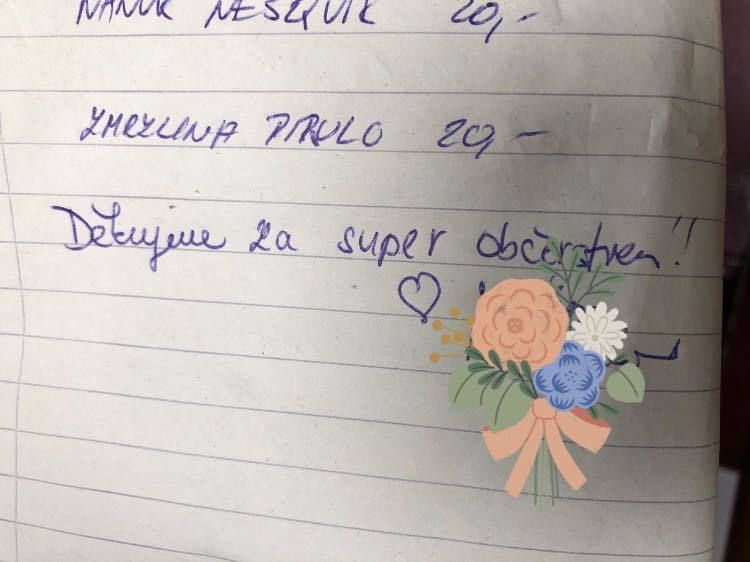 NANUK NESQUIK 20,-
ZMRZLINA PIRULO 20,-
Děkujeme za super občerstvení!!